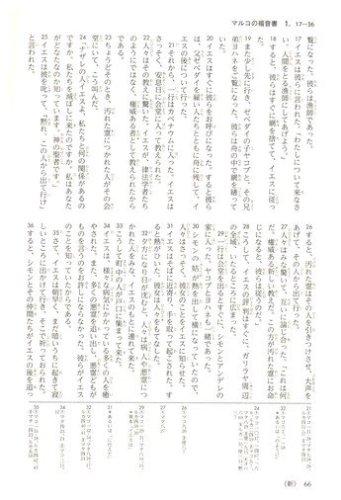 マルコの福音書 1, 17—36
覧になった。彼らは漁師であった。
17 イエスは彼らに言われた。「わたしについて来なさ
い。人間をとる漁師にしてあげよう。」
18 すると、彼らはすぐに網を捨てて、イエスに従っ
た。
19 また少し先に行き、ゼベダイの子ヤコブと、その兄
弟ヨハネをご覧になった。彼らは舟の中で網を繕って
いた。
20 イエスはすぐに彼らをお呼びになった。すると彼ら
は、父ゼベダイを雇い人たちとともに舟に残して、イ
エスの後について行った。
21 それから、一行はカペナウムに入った。イエスはさ
っそく、安息日に会堂に入って教えられた。
22 人々はその教えに驚いた。イエスが、律法学者たち
のようにではなく、権威ある者として教えられたから
である。
23 ちょうどそのとき、汚れた霊につかれた人がその会
堂にいて、こう叫んだ。
24 「ナザレの人イエスよ、私たちと何の関係があるの
ですか。私たちを滅ぼしに来たのですか。私はあなた
がどなたなのか知っています。神の聖者です。」
25 イエスは彼を叱って、「黙れ。この人から出て行け」
と言われた。
26 すると、汚れた霊はその人を引きつけさせ、大声を
あげて、その人から出て行った。
27 人々はみな驚いて、互いに論じ合った。「これは何
だ。権威ある新しい教えだ。この方が汚れた霊にお命
じになると、彼らは従うのだ。」
28 こうして、イエスの評判はすぐに、ガリラヤ周辺
の全域、いたるところに広まった。
29 一行は会堂を出るとすぐに、シモンとアンデレの
家に入った。ヤコブとヨハネも一緒であった。
30 シモンの姑が熱を出して横になっていたので、
人々はさっそく、彼女のことをイエスに知らせた。
31 イエスはそばに近寄り、手を取って起こされた。す
ると熱がひいた。彼女は人々をもてなした。
32 夕方になり日が沈むと、人々は病人や悪霊につ
かれた人をみな、イエスのもとに連れて来た。
33 こうして町中の人が戸口に集まって来た。
34 イエスは、様々な病気にかかっている多くの人を癒
やされた。また、多くの悪霊を追い出し、悪霊どもが
ものを言うのをお許しにならなかった。彼らがイエス
のことを知っていたからである。
35 さて、イエスは朝早く、まだ暗いうちに起きて寂
しいところに出かけて行き、そこで祈っておられた。
36 すると、シモンとその仲間たちがイエスの後を追っ
〈新〉 66